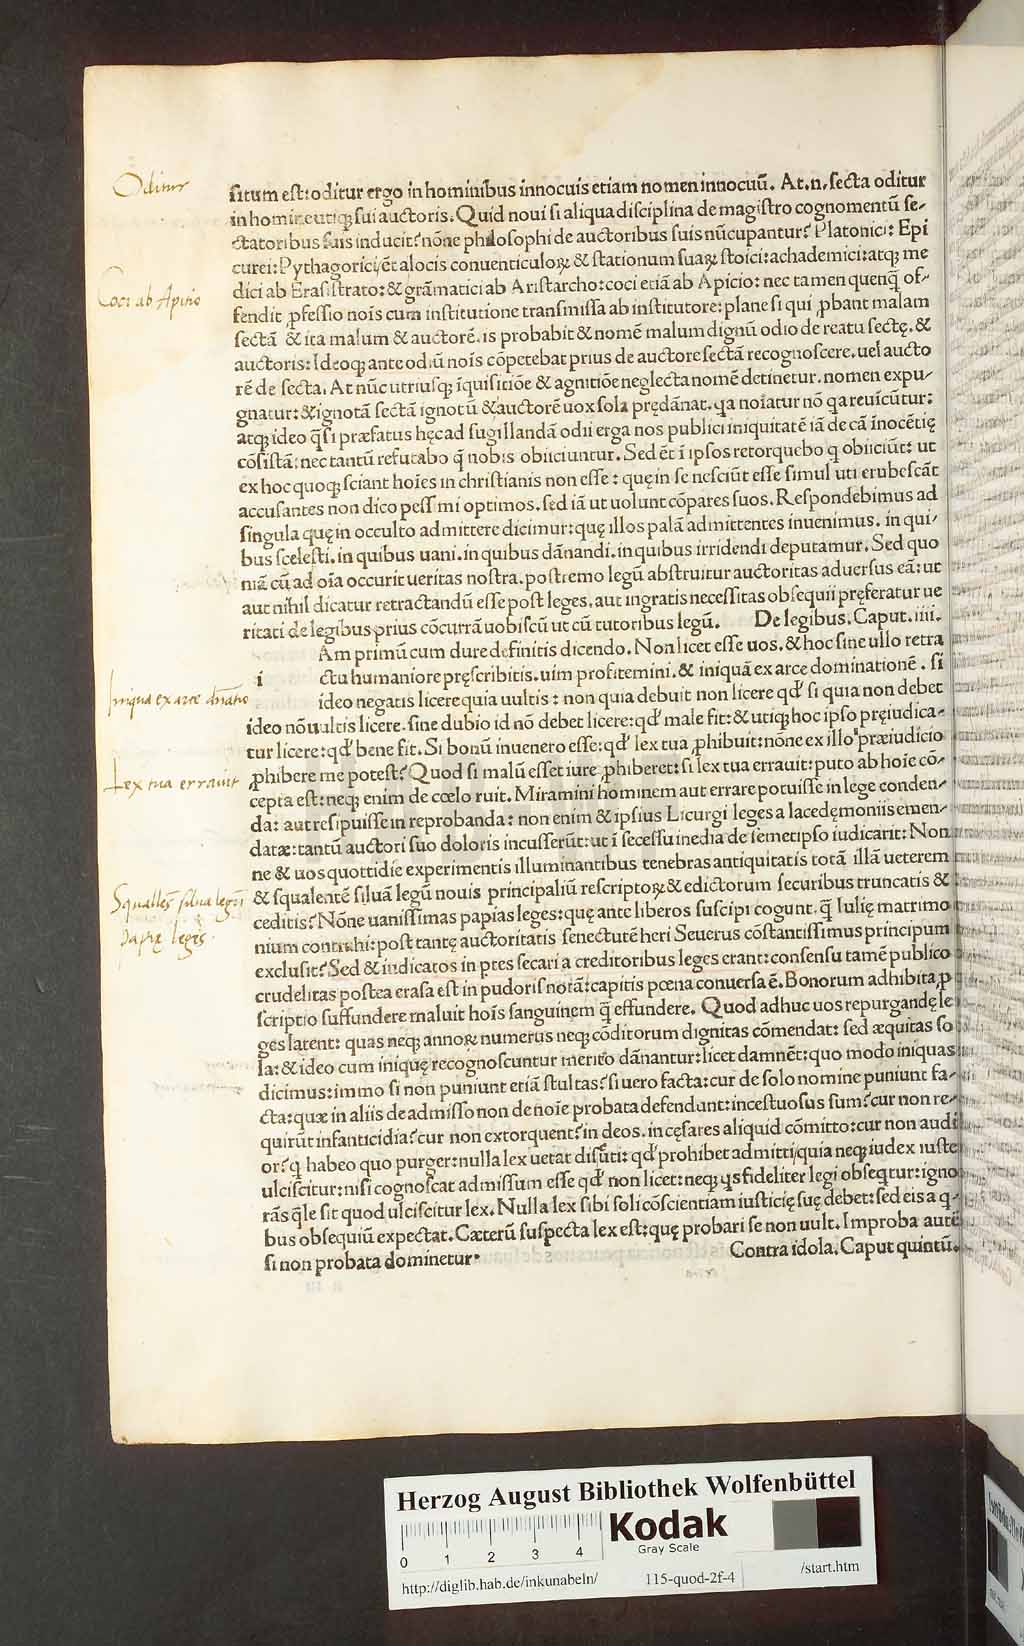 Oditur
situm est: oditur ergo in hominibus innocuis etiam nomen innocuū. At. n. secta oditur
in homine utiqꝫ sui auctoris. Quid noui si aliqua disciplina de magistro cognomentū se-
ctatoribus suis inducit? nōne philosophi de auctoribus suis nūcupantur? Platonici: Epi
curei: Pythagorici, ēt a locis conuenticuloꝝ & stationum suaꝝ stoici: achademici: atqꝫ me
Coci ab Apitio
dici ab Erasistrato: & grāmatici ab Aristarcho: coci etiā ab Apicio: nec tamen quenq̄ of-
fendit ꝓfessio nois cum institutione transmissa ab institutore: plane si qui ꝓbant malam
sectā & ita malum & auctorē. is probabit & nomē malum dignū odio de reatu sectę. &
auctoris: Ideoqꝫ ante odiū nois cōpetebat prius de auctore sectā recognoscere. uel aucto
rē de secta. At nūc utriusqꝫ īquisitiōe & agnitiōe neglecta nomē detinetur. nomen expu-
gnatur: & ignotā sectā ignotū & auctorē uox sola prędānat. qa noiatur nō qa reuīcūtur:
atqꝫ ideo q̄si præfatus hęc ad sugillandā odii erga nos publici iniquitatē iā de cā īnocētię
cōsistā: nec tantū refutabo q̄ nobis obiiciuntur. Sed ēt ī ipsos retorquebo q obiiciūt: ut
ex hoc quoqꝫ sciant hoīes in christianis non esse: quę in se nesciūt esse simul uti erubescāt
accusantes non dico pessimi optimos. sed iā ut uolunt cōpares suos. Respondebimus ad
singula quę in occulto admittere dicimur: quę illos palā admittentes inuenimus. in qui-
bus scelesti. in quibus uani. in quibus dānandi. in quibus irridendi deputamur. Sed quo
niā cū ad oīa occurit ueritas nostra. postremo legū abstruitur auctoritas aduersus eā: ut
aut nihil dicatur retractandū esse post leges. aut ingratis necessitas obsequii pręferatur ue
ritati de legibus prius cōcurrā uobiscū ut cū tutoribus legū. De legibus. Caput. iiii.
i Am primū cum dure definitis dicendo. Non licet esse uos. & hoc sine ullo retra
ctu humaniore pręscribitis. uim profitemini. & iniquā ex arce dominationē. si
Iniqua ex arce dnatio
ideo negatis licere quia uultis: non quia debuit non licere qd' si quia non debet
ideo nō uultis licere. sine dubio id nō debet licere: qd' male fit: & utiqꝫ hoc ipso pręiudica-
tur licere: qd' bene fit. Si bonū inuenero esse: qd' lex tua ꝓhibuit: nōne ex illo præiudicio
Lex tua errauit
ꝓhibere me potest? Quod si malū esset iure ꝓhiberet: si lex tua errauit: puto ab hoīe cō-
cepta est: neqꝫ enim de cœlo ruit. Miramini hominem aut errare potuisse in lege conden-
da: aut resipuisse in reprobanda: non enim & ipsius Licurgi leges a lacedęmoniis emen-
datæ: tantū auctori suo doloris incusserūt: ut ī secessu inedia de semetipso iudicarit: Non
ne & uos quottidie experimentis illuminantibus tenebras antiquitatis totā illā ueterem
Squallēs silua legū
& squalentē siluā legū nouis principaliū rescriptoꝝ & edictorum securibus truncatis &
ceditis? Nōne uanissimas papias leges: quę ante liberos suscipi cogunt. q̄ Iulię matrimo
papię leges.
nium contrahi: post tantę auctoritatis senectutē heri Seuerus cōstantissimus principum
exclusit? Sed & iudicatos in ptes secari a creditoribus leges erant: consensu tamē publico
crudelitas postea erasa est in pudoris notā: capitis pœna conuersa ē. Bonorum adhibita ꝓ
scriptio suffundere maluit hoīs sanguinem q̄ effundere. Quod adhuc uos repurgandę le
ges latent: quas neqꝫ annoꝝ numerus neqꝫ cōditorum dignitas cōmendat: sed æquitas so
la: & ideo cum iniquę recognoscuntur merito dānantur: licet damnēt: quo modo iniquas
dicimus: immo si non puniunt etiā stultas? si uero facta: cur de solo nomine puniunt fa-
cta: quæ in aliis de admisso non de noīe probata defendunt: incestuosus sum? cur non re-
quirūt infanticidia? cur non extorquent? in deos. in cęsares aliquid cōmitto: cur non audi
or? q habeo quo purger: nulla lex uetat discuti: qd' prohibet admitti, quia neqꝫ iudex iuste
ulciscitur: nisi cognoscat admissum esse qd' non licet: neqꝫ ꝗs fideliter legi obseqtur: igno
rās q̄le sit quod ulciscitur lex. Nulla lex sibi soli cōscientiam iusticię suę debet: sed eis a q-
bus obsequiū expectat. Cæterū suspecta lex est: quę probari se non uult. Improba autē
si non probata dominetur. Contra idola. Caput quintū.
Herzog August Bibliothek Wolfenbüttel
Kodak
Gray Scale
0 1 2 3 4
http://diglib.hab.de/inkunabeln/ 115-quod-2f-4 /start.htm